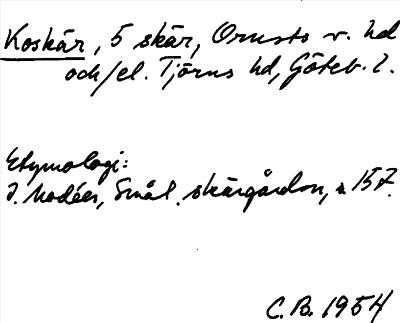 Koskär, 5 skär, Orusts v. hd
och/el. Tjörns hd, Göteb. l.
Etymologi:
I. Modéer, Smål. skärgården, s. 157.
C.B. 1954